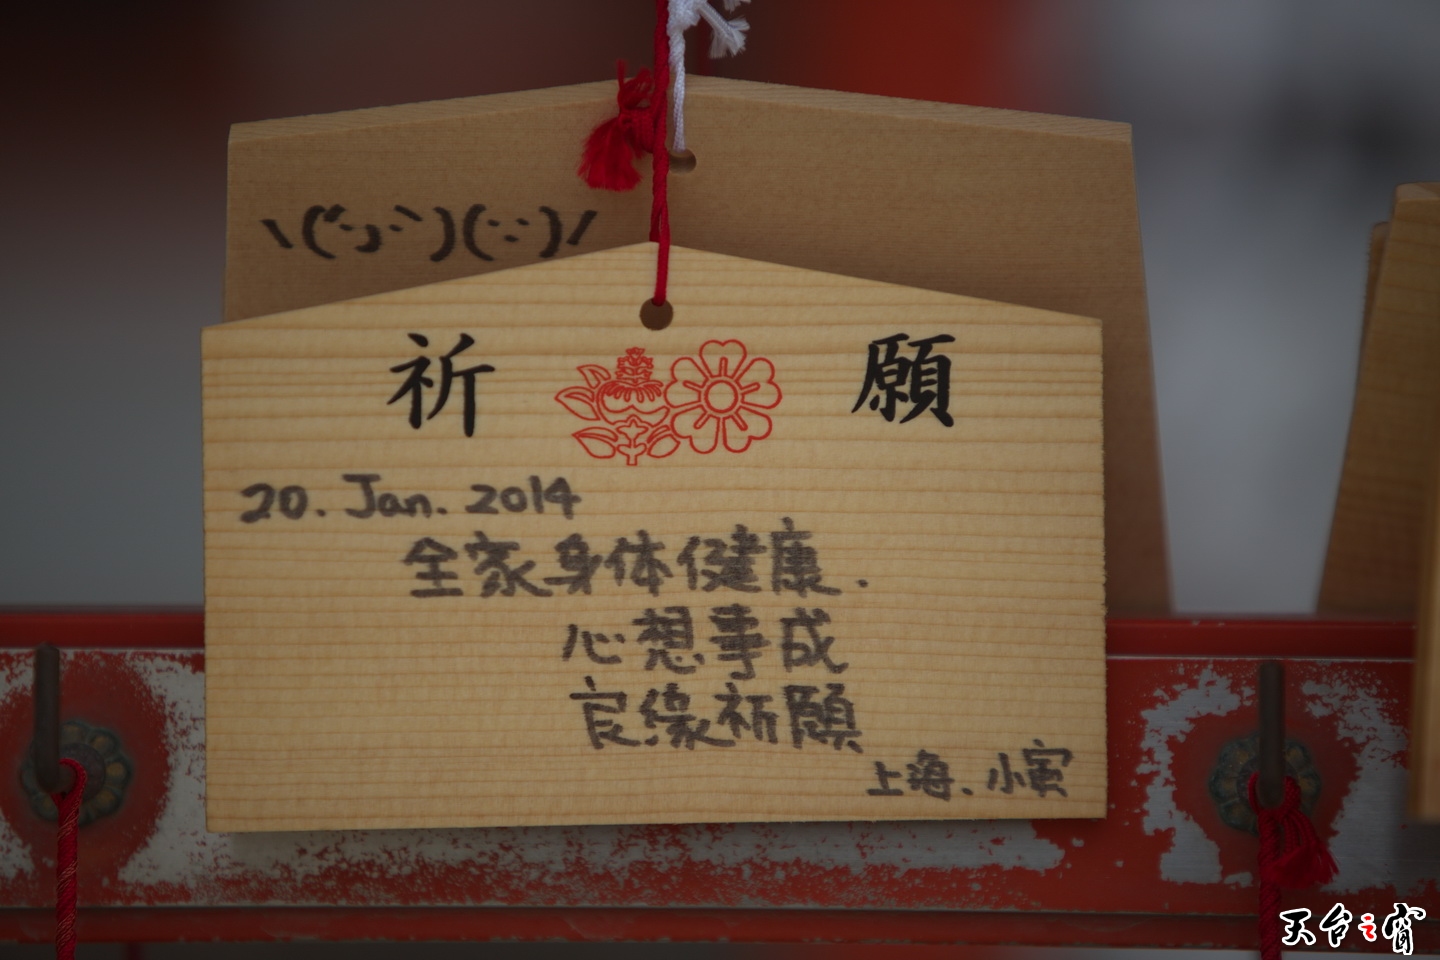 \(´･ᴗ･`)(･:･)/
祈 願
20. Jan. 2014
全家身体健康.
心想事成
良缘祈願
上海、小寅
天台之窗